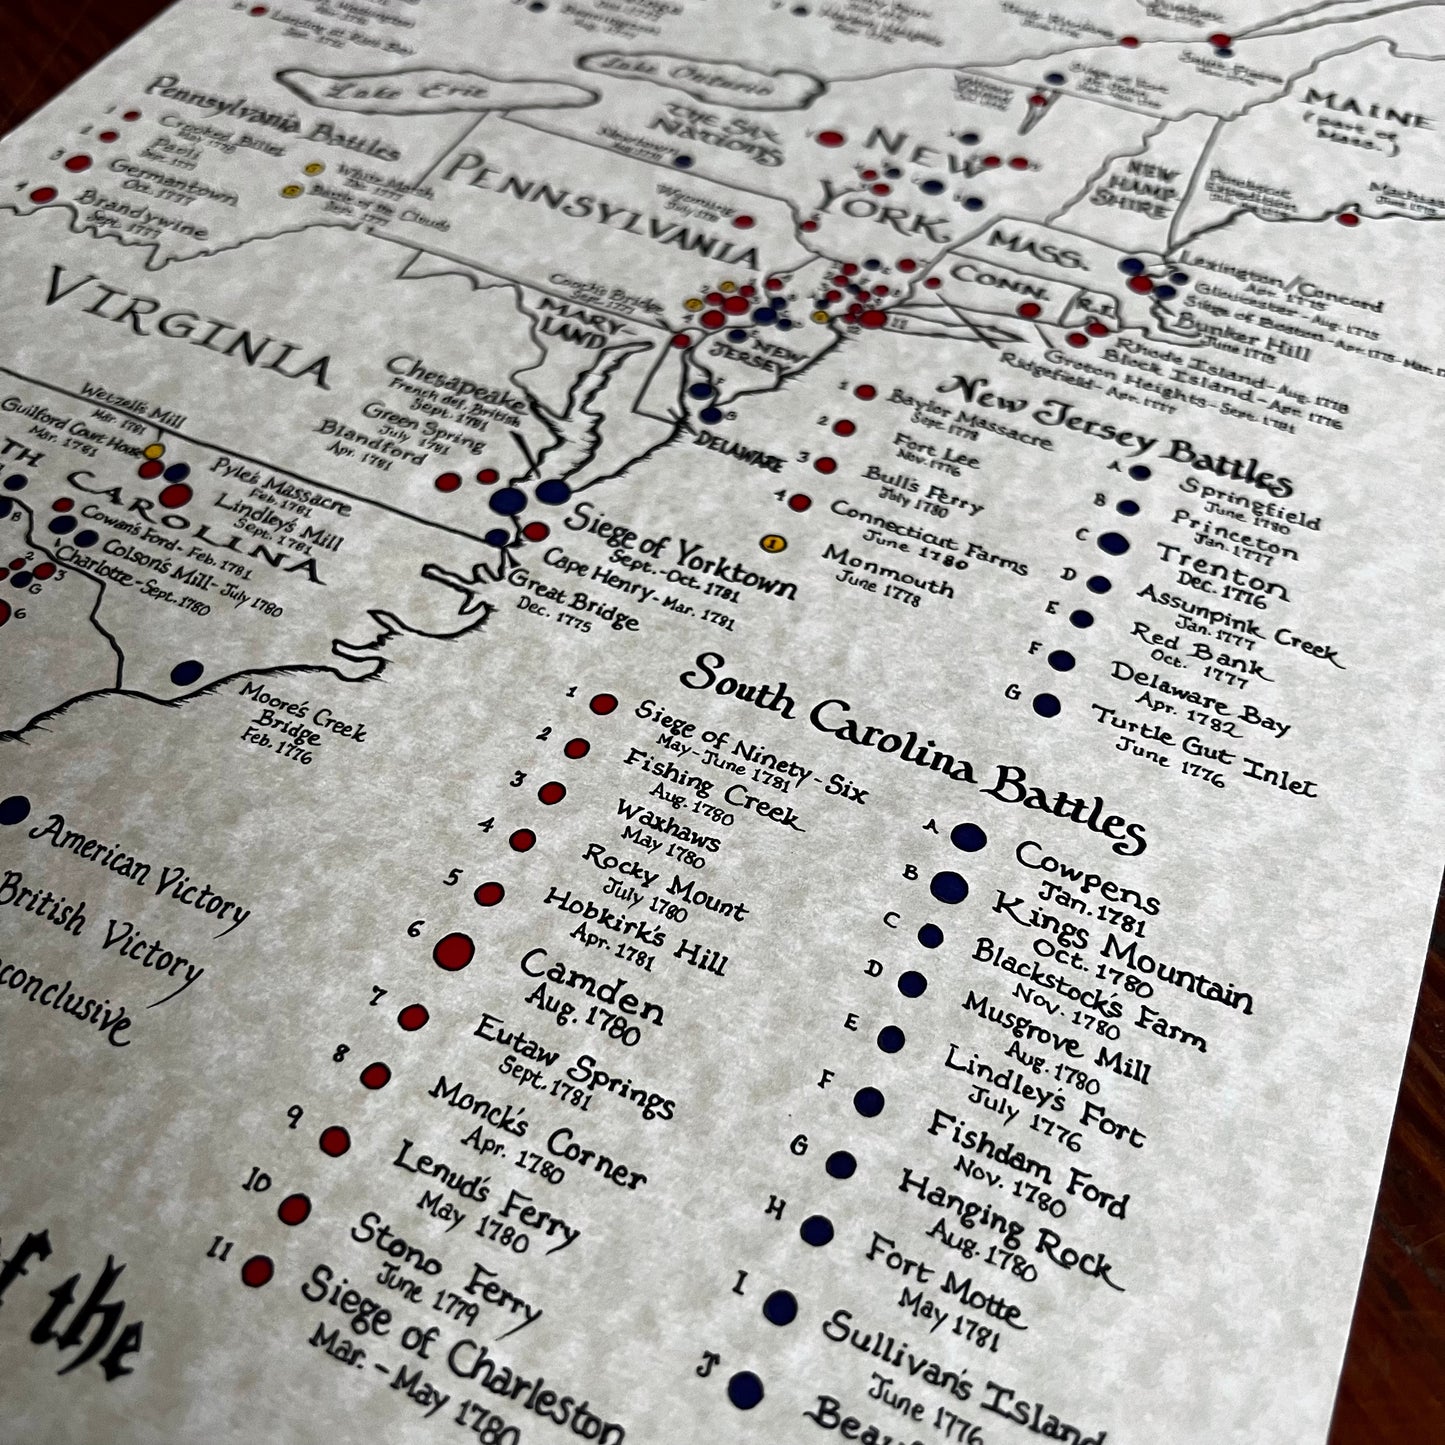 Lake Erie
Lake Ontario
THE SIX
NATIONS
MAINE
(part of
Mass.)
NEW
YORK
NEW
HAMP-
SHIRE
Pennsylvania Battles
1
Crooked Billet
2
Paoli
3
Germantown
Oct. 1777
4
Brandywine
Sept. 1777
5
White Marsh
6
Battle of the Clouds
PENNSYLVANIA
Wyoming
July 1778
MASS.
CONN.
R.I.
Lexington/Concord
Apr. 1775
Gloucester - Aug. 1775
Siege of Boston - Apr. 1775 - Mar.
Bunker Hill
June 1775
Rhode Island - Aug. 1778
Block Island - Apr. 1776
Groton Heights - Sept. 1781
Ridgefield - Apr. 1777
VIRGINIA
MARY-
LAND
Cooch's Bridge
Sept. 1777
NEW
JERSEY
DELAWARE
Chesapeake
French def. British
Sept. 1781
Green Spring
July 1781
Blandford
Apr. 1781
Wetzell's Mill
Mar. 1781
Guilford Court House
Mar. 1781
TH CAROLINA
Pyle's Massacre
Feb. 1781
Lindley's Mill
Sept. 1781
Cowan's Ford - Feb. 1781
Colson's Mill - July 1780
Charlotte - Sept. 1780
Siege of Yorktown
Sept. - Oct. 1781
Cape Henry - Mar. 1781
Great Bridge
Dec. 1775
Moore's Creek
Bridge
Feb. 1776
New Jersey Battles
1
Baylor Massacre
Sept. 1778
2
Fort Lee
Nov. 1776
3
Bull's Ferry
July 1780
4
Connecticut Farms
June 1780
1
Monmouth
June 1778
A
Springfield
June 1780
B
Princeton
Jan. 1777
C
Trenton
Dec. 1776
D
Assunpink Creek
Jan. 1777
E
Red Bank
Oct. 1777
F
Delaware Bay
Apr. 1782
G
Turtle Gut Inlet
June 1776
South Carolina Battles
1
Siege of Ninety-Six
May - June 1781
2
Fishing Creek
Aug. 1780
3
Waxhaws
May 1780
4
Rocky Mount
July 1780
5
Hobkirk's Hill
Apr. 1781
6
Camden
Aug. 1780
7
Eutaw Springs
Sept. 1781
8
Monck's Corner
Apr. 1780
9
Lenud's Ferry
May 1780
10
Stono Ferry
June 1779
11
Siege of Charleston
Mar. - May 1780
A
Cowpens
Jan. 1781
B
Kings Mountain
Oct. 1780
C
Blackstock's Farm
Nov. 1780
D
Musgrove Mill
Aug. 1780
E
Lindley's Fort
July 1776
F
Fishdam Ford
Nov. 1780
G
Hanging Rock
Aug. 1780
H
Fort Motte
May 1781
I
Sullivan's Island
June 1776
J
Beau
American Victory
British Victory
conclusive
of the